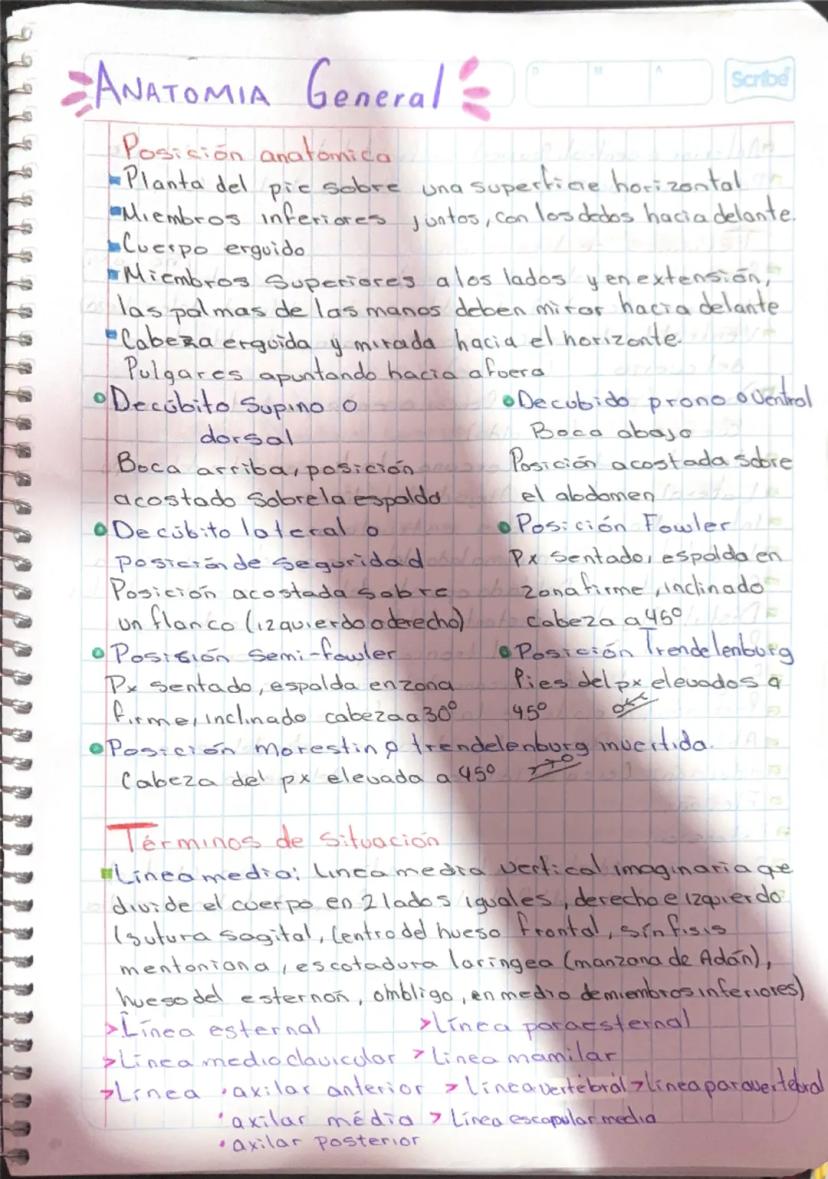 ANATOMIA General
Scribe
D M A
Posición anatómica
Planta del pie sobre una superficie horizontal
Miembros inferiores juntos, con los dedos hacia delante.
Cuerpo erguido
Miembros superiores a los lados y en extensión,
las palmas de las manos deben mirar hacia delante
Cabeza erguida y mirada hacia el horizonte.
Pulgares apuntando hacia afuera
Decúbito Supino o
dorsal
Boca arriba, posición
acostado sobre la espalda
Decubido prono o ventral
Boca abajo
Posición acostada sobre
el abdomen
Decúbito lateral o
posición de seguridad
Posición acostada sobre
un flanco (izquierdo o derecho)
Posición Fowler
Px sentado, espalda en
zona firme, inclinado
cabeza a 45°
Posisión semi-fowler
Px sentado, espalda en zona
firme, inclinado cabeza a 30°
Posición Trendelenburg
Pies del px elevados a
45°
Posición morestin o trendelenburg invertida.
Cabeza del px elevada a 45°
Términos de situación
Línea media: Línea media vertical imaginaria que
divide el cuerpo en 2 lados iguales, derecho e izquierdo
(sutura sagital, centro del hueso frontal, sínfisis
mentoniana, escotadura laríngea (manzana de Adán),
hueso del esternón, ombligo, en medio de miembros inferiores)
>Línea esternal >Línea paraesternal
>Línea medioclavicular >Línea mamilar
>Línea •axilar anterior >Línea vertebral >línea paravertebral
•axilar média >Línea escapular media
•axilar posterior